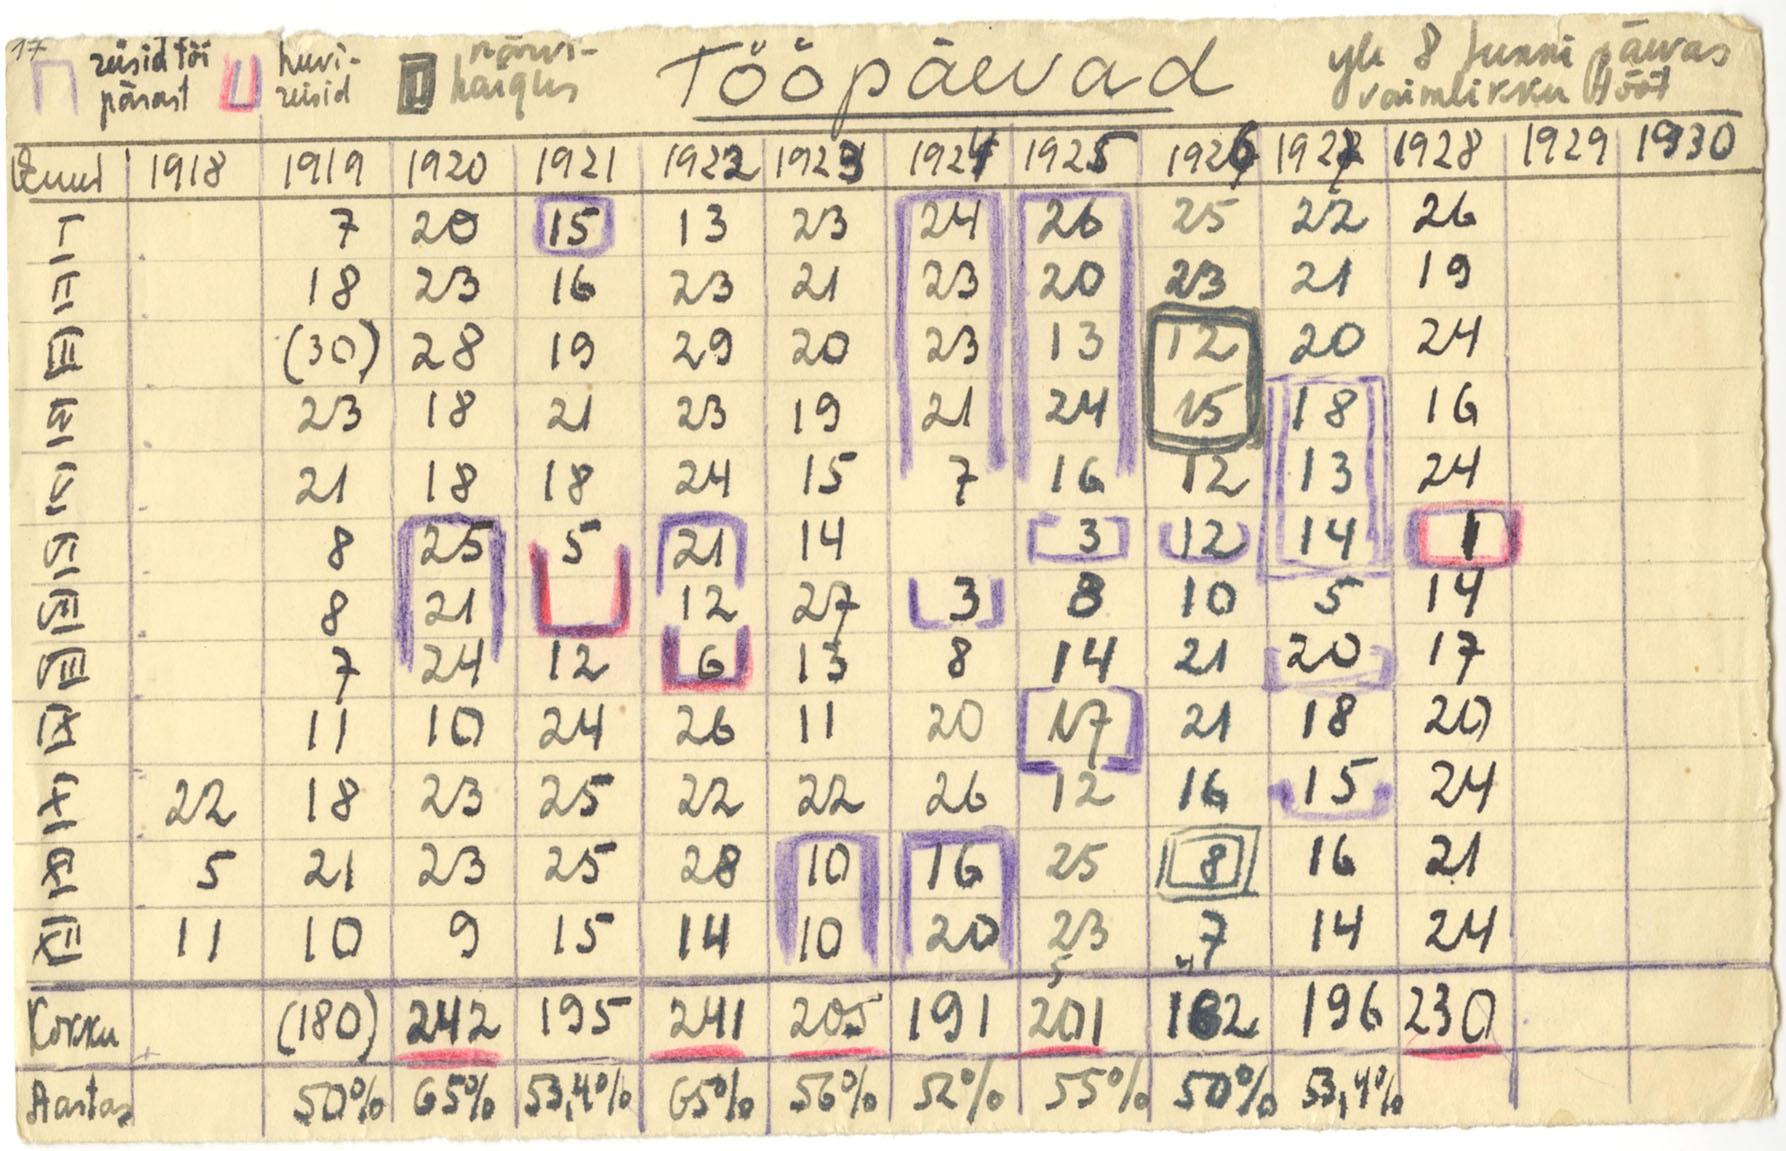 17
reisid töö pärast
huvi-reisid
närvi-haigus
Tööpäevad
yle 8 tunni päevas vaimlikku tööt
Kuud 1918 1919 1920 1921 1922 1923 1924 1925 1926 1927 1928 1929 1930
I 7 20 15 13 23 24 26 25 22 26
II 18 23 16 23 21 23 20 23 21 19
III (30) 28 19 29 20 23 13 12 20 24
IV 23 18 21 23 19 21 24 15 18 16
V 21 18 18 24 15 7 16 12 13 24
VI 8 25 5 21 14 3 12 14 1
VII 8 21 12 27 3 8 10 5 14
VIII 7 24 12 6 13 8 14 21 20 17
IX 11 10 24 26 11 20 17 21 18 20
X 22 18 23 25 22 22 26 12 16 15 24
XI 5 21 23 25 28 10 16 25 8 16 21
XII 11 10 9 15 14 10 20 23 7 14 24
Kokku (180) 242 195 241 205 191 201 182 196 230
Aastas 50% 65% 53,4% 65% 56% 52% 55% 50% 53,4%